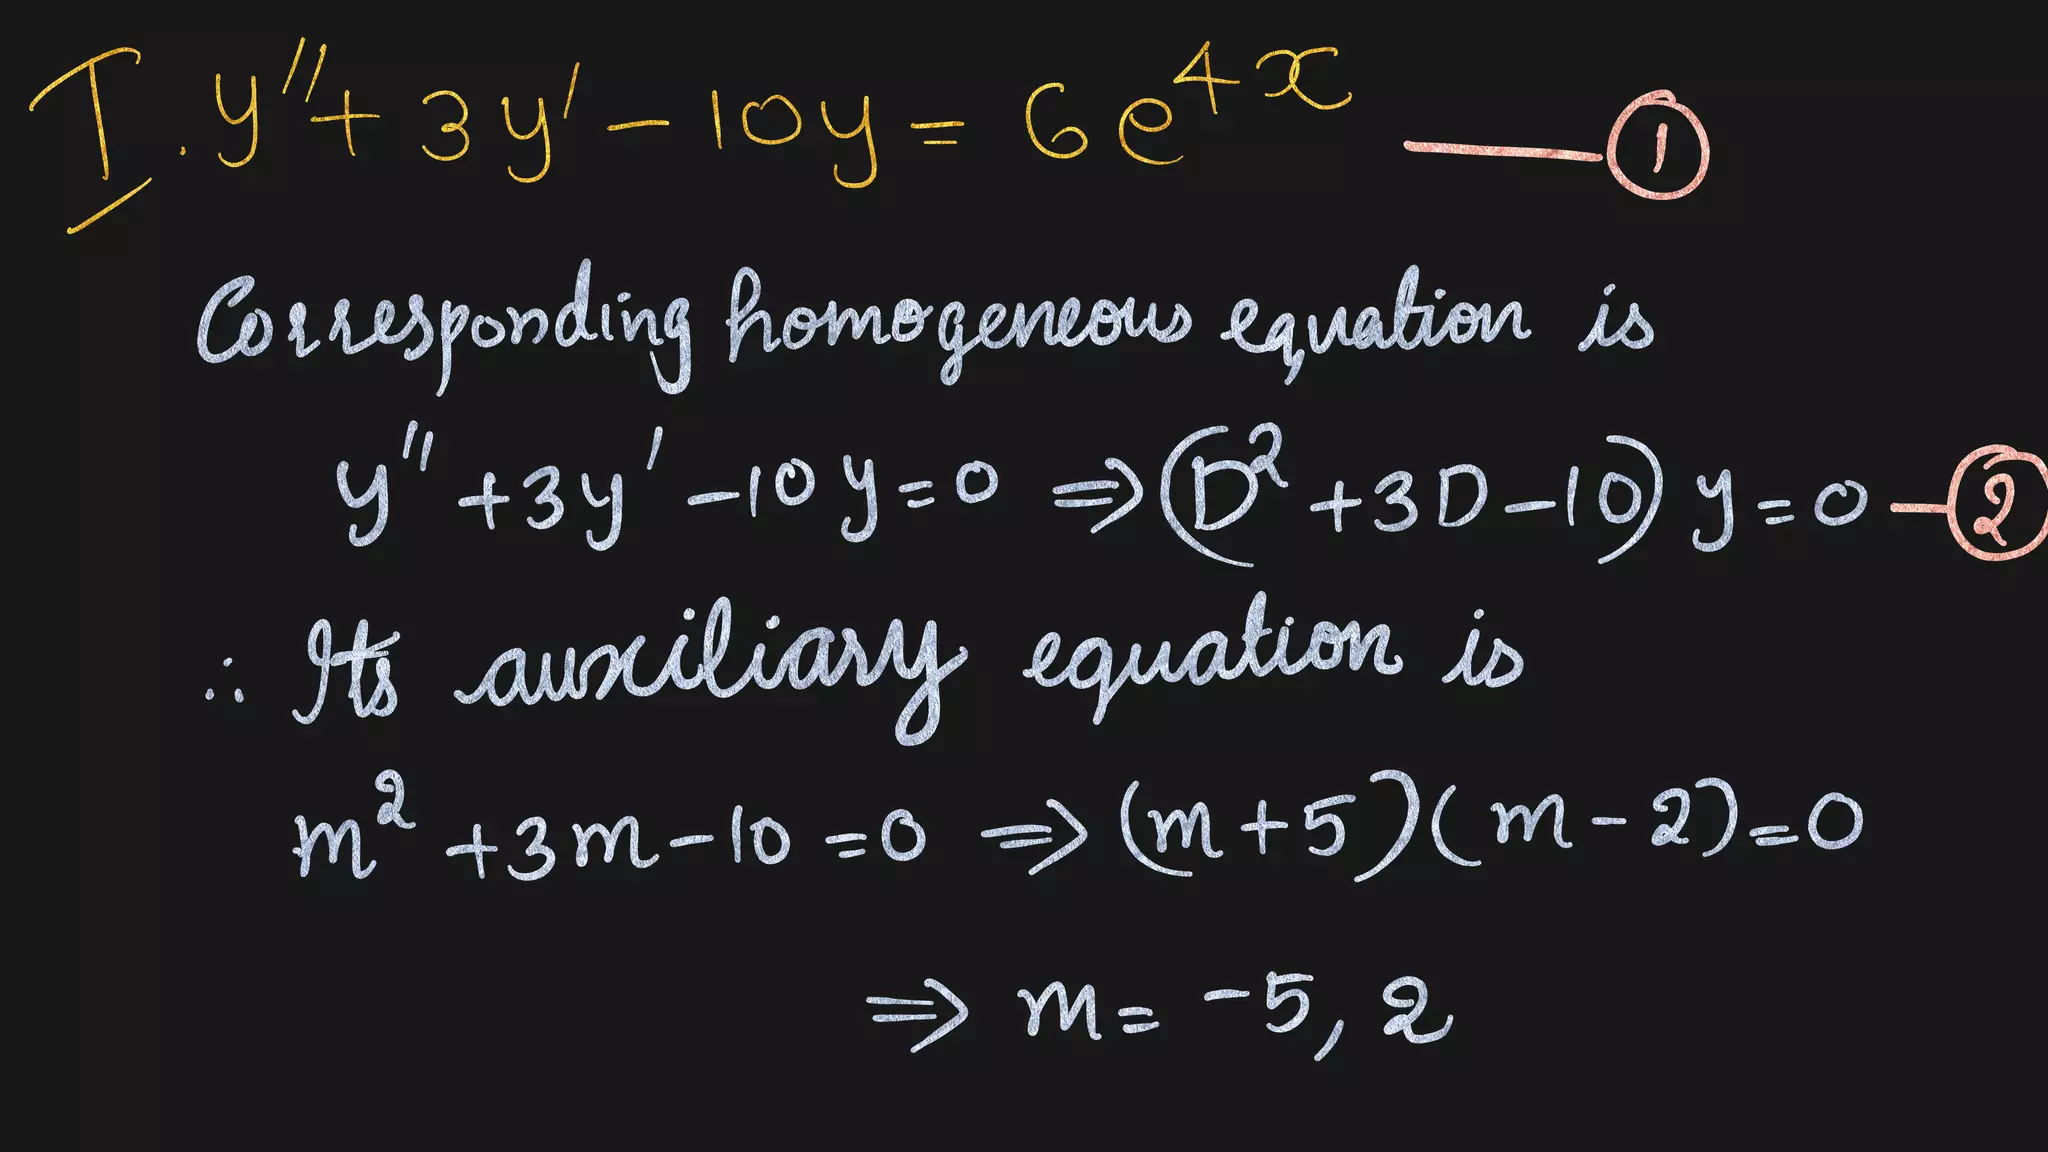 I. y'' + 3y' - 10y = 6e^{4x} — ①
Corresponding homogeneous equation is
y'' + 3y' - 10y = 0 ⇒ (D² + 3D - 10) y = 0 — ②
∴ Its auxiliary equation is
m² + 3m - 10 = 0 ⇒ (m + 5)(m - 2) = 0
⇒ m = -5, 2